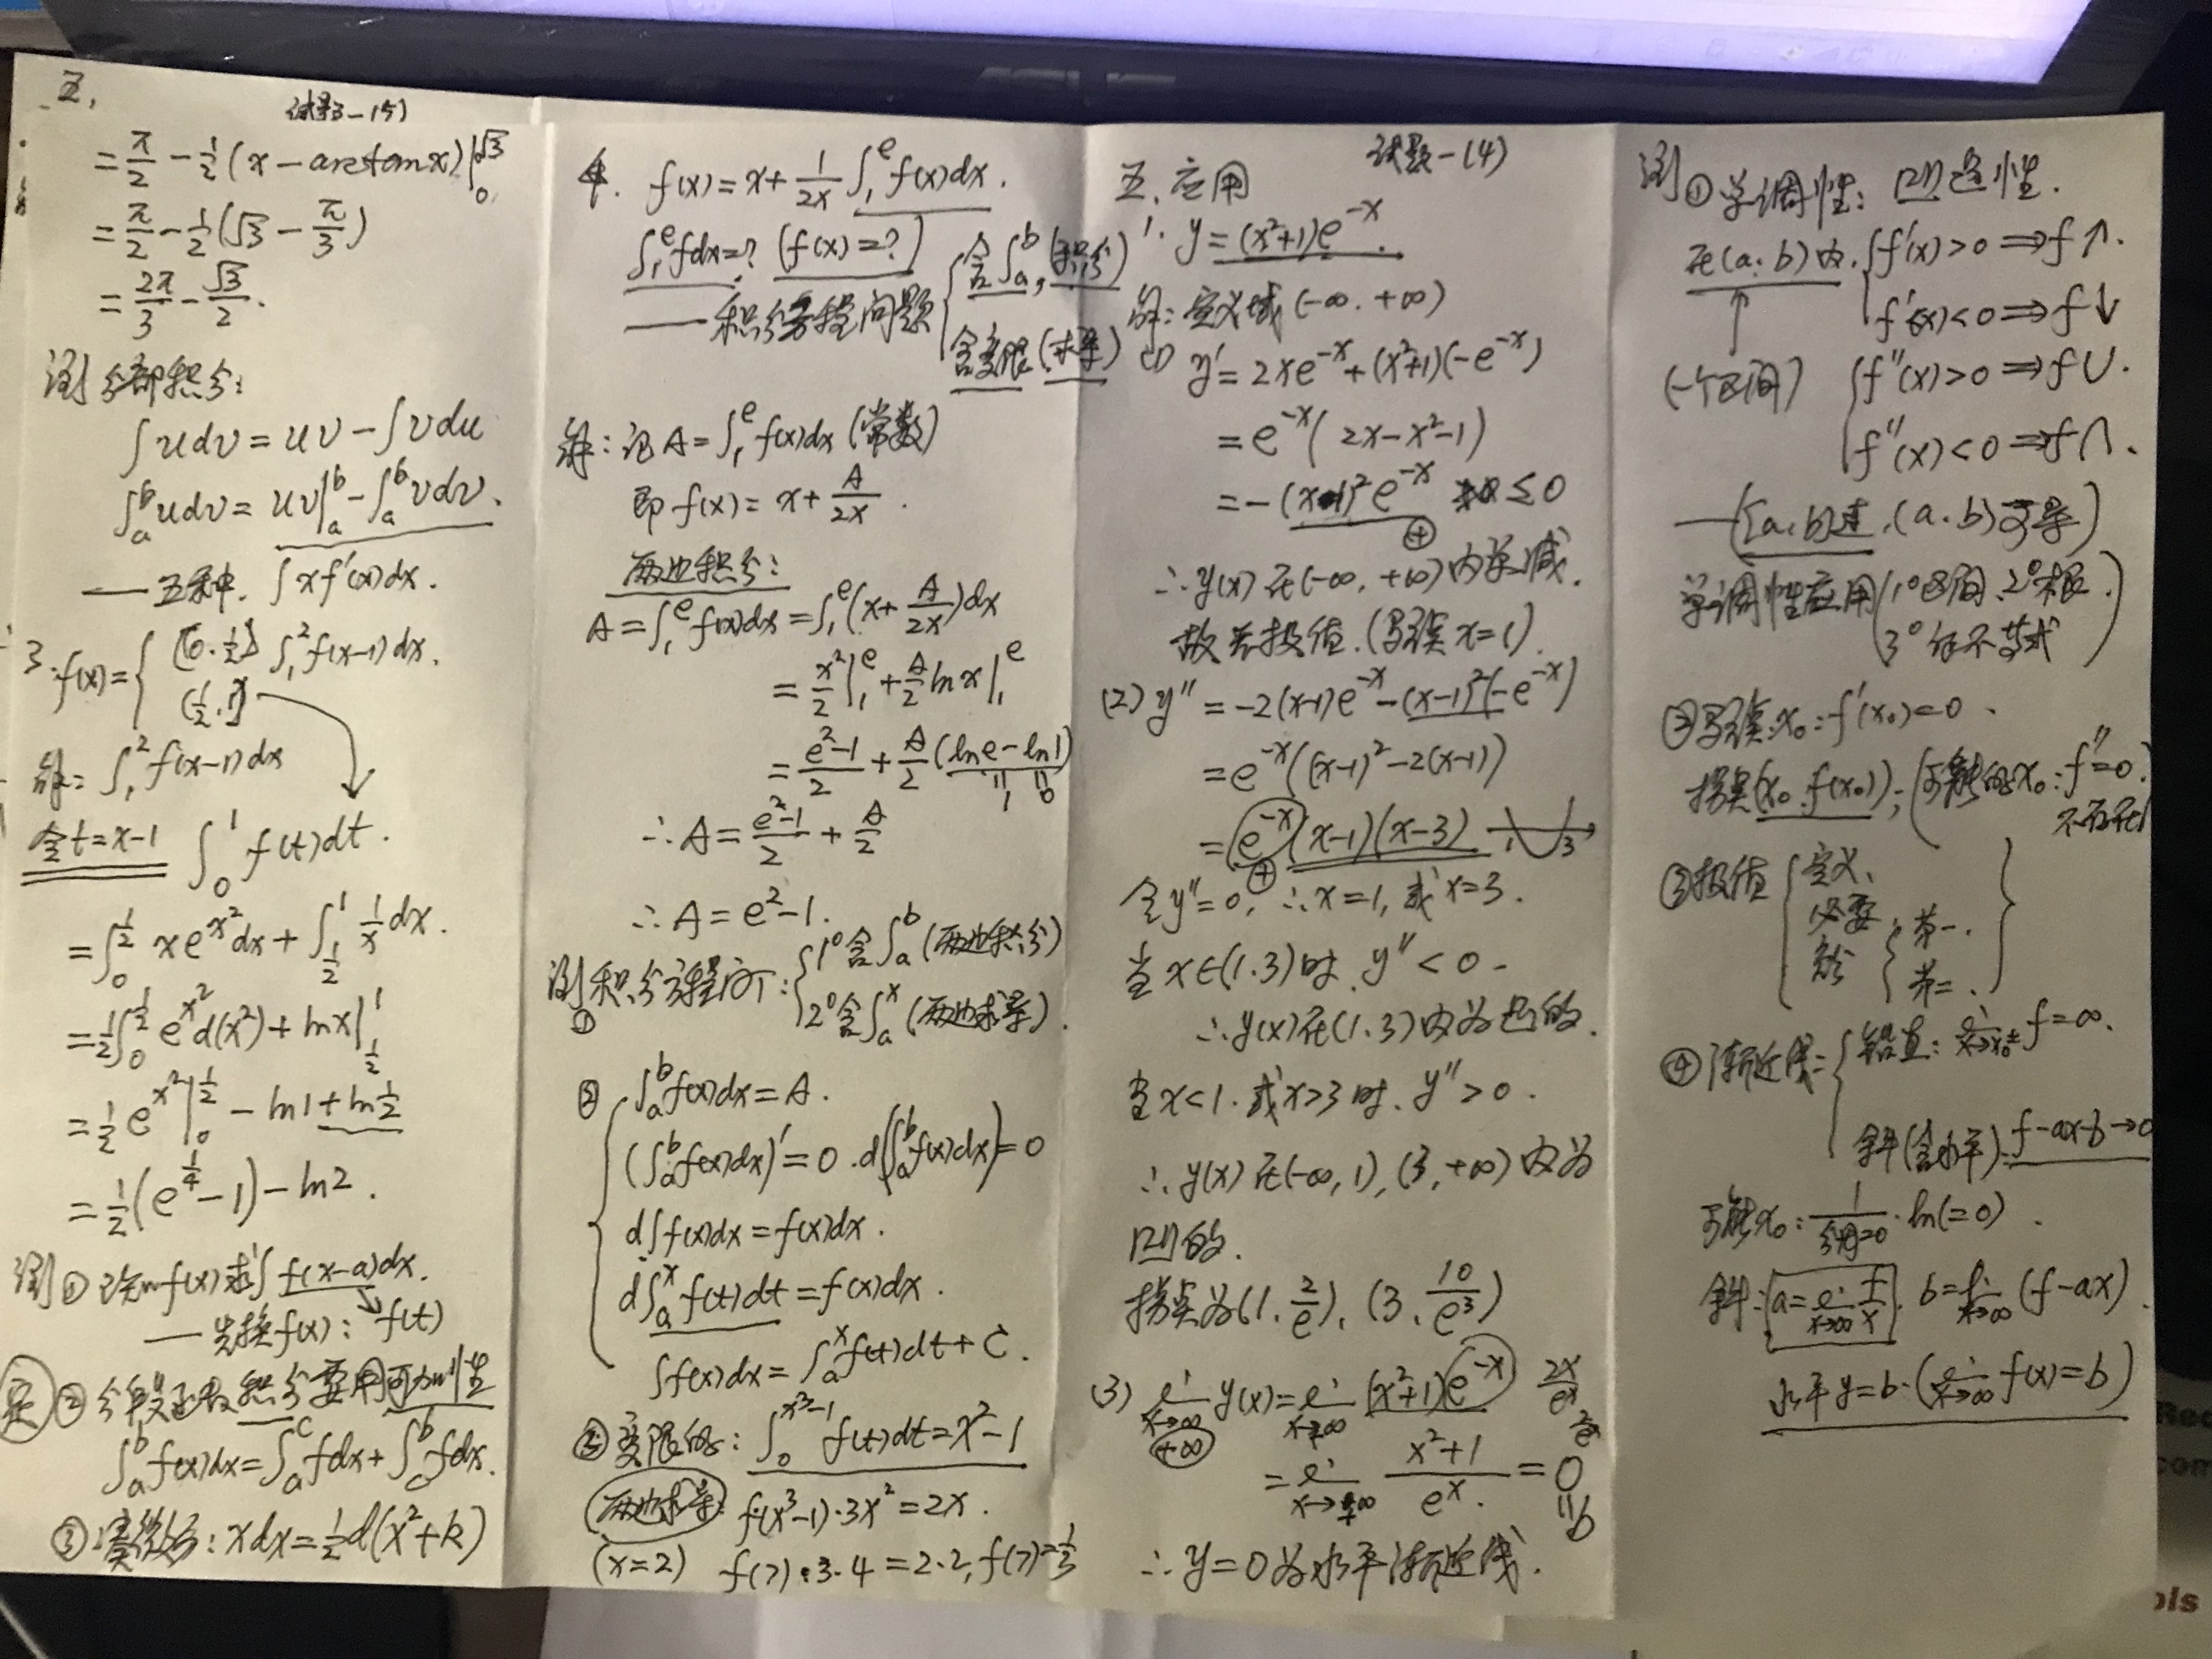 五、
试题3-(5)
= π/2 - 1/2 (x - arctan x) |₀^√3
= π/2 - 1/2 (√3 - π/3)
= 2π/3 - √3/2.
测 分部积分:
∫udv = uv - ∫vdu
∫ₐᵇ udv = uv|ₐᵇ - ∫ₐᵇ vdv.
— 五种. ∫xf'(x)dx.
3. f(x) = { [0, 1/2] ∫₁² f(x-1)dx.
(1/2, 1]
解: ∫₁² f(x-1)dx
令t=x-1 ∫₀¹ f(t)dt.
= ∫₀^(1/2) xe^(x²)dx + ∫_(1/2)^1 1/x dx.
= 1/2 ∫₀^(1/2) e^(x²) d(x²) + ln x |_(1/2)^1
= 1/2 e^(x²) |₀^(1/2) - ln1 + ln 1/2
= 1/2 (e^(1/4) - 1) - ln2.
测 ① 已知f(x)求∫f(x-a)dx.
— 先换f(x): f(t)
定 ② 分段函数积分要用可加性
∫ₐᵇ f(x)dx = ∫ₐᶜ fdx + ∫_cᵇ fdx.
③ 凑微分: xdx = 1/2 d(x²+k)
4. f(x) = x + 1/(2x) ∫₁ᵉ f(x)dx.
∫₁ᵉ fdx = ? (f(x) = ?)
— 积分方程问题 { 含∫ₐᵇ, (积分)
含变限 (求导)
解: 记A = ∫₁ᵉ f(x)dx (常数)
即 f(x) = x + A/(2x).
两边积分:
A = ∫₁ᵉ f(x)dx = ∫₁ᵉ (x + A/(2x))dx
= x²/2 |₁ᵉ + A/2 ln x |₁ᵉ
= (e²-1)/2 + A/2 (ln e - ln 1)
1 0
∴ A = (e²-1)/2 + A/2
∴ A = e²-1.
测 ① 积分方程问T: { 1° 含∫ₐᵇ (两边积分)
2° 含∫ₐˣ (两边求导).
② { ∫ₐᵇ f(x)dx = A.
(∫ₐᵇ f(x)dx)' = 0. d(∫ₐᵇ f(x)dx) = 0
d∫f(x)dx = f(x)dx.
d∫ₐˣ f(t)dt = f(x)dx.
∫f(x)dx = ∫ₐˣ f(t)dt + C.
③ 变限的: ∫₀^(x³-1) f(t)dt = x²-1
两边求导: f(x³-1)·3x² = 2x.
(x=2) f(7)·3·4 = 2·2, f(7) = 1/3
试题-(4)
五. 应用
1. y = (x²+1)e^(-x).
解: 定义域 (-∞, +∞)
(1) y' = 2xe^(-x) + (x²+1)(-e^(-x))
= e^(-x) (2x - x² - 1)
= -(x-1)² e^(-x) ≤ 0
⊕
∴ y(x) 在(-∞, +∞)内单减.
故无极值. (驻点x=1).
(2) y'' = -2(x-1)e^(-x) - (x-1)²(-e^(-x))
= e^(-x) ((x-1)² - 2(x-1))
= e^(-x) (x-1)(x-3) 1 3
⊕
令y''=0, ∴ x=1, 或x=3.
当x∈(1.3)时, y''<0.
∴ y(x)在(1.3)内为凸的.
当x<1. 或x>3时. y''>0.
∴ y(x)在(-∞, 1), (3, +∞)内为
凹的.
拐点为(1. 2/e), (3. 10/e³)
(3) lim x→∞ y(x) = lim x→+∞ (x²+1)e^(-x) 2x/eˣ
+∞ 2/eˣ
= lim x→+∞ (x²+1)/eˣ = 0
= b
∴ y=0为水平渐近线.
测 ① 单调性: 凹凸性.
在(a.b)内. { f'(x)>0 ⇒ f↑.
f'(x)<0 ⇒ f↓
(一个区间) { f''(x)>0 ⇒ f∪.
f''(x)<0 ⇒ f∩.
— ([a,b]连, (a.b)可导)
单调性应用 (1° 区间. 2° 根.
3° 证不等式)
② 驻点x₀: f'(x₀)=0.
拐点(x₀, f(x₀)); (可能的x₀: f''=0.
不存在)
③ 极值 { 定义、
必要.
充分 { 第一.
第二.
④ 渐近线: { 铅直: lim x→x₀± f=∞.
斜(含水平): f-ax-b→0
可能x₀: 1/(分母=0). ln(=0).
斜: a = lim x→∞ f/x, b = lim x→∞ (f-ax).
水平y=b. (lim x→∞ f(x)=b)